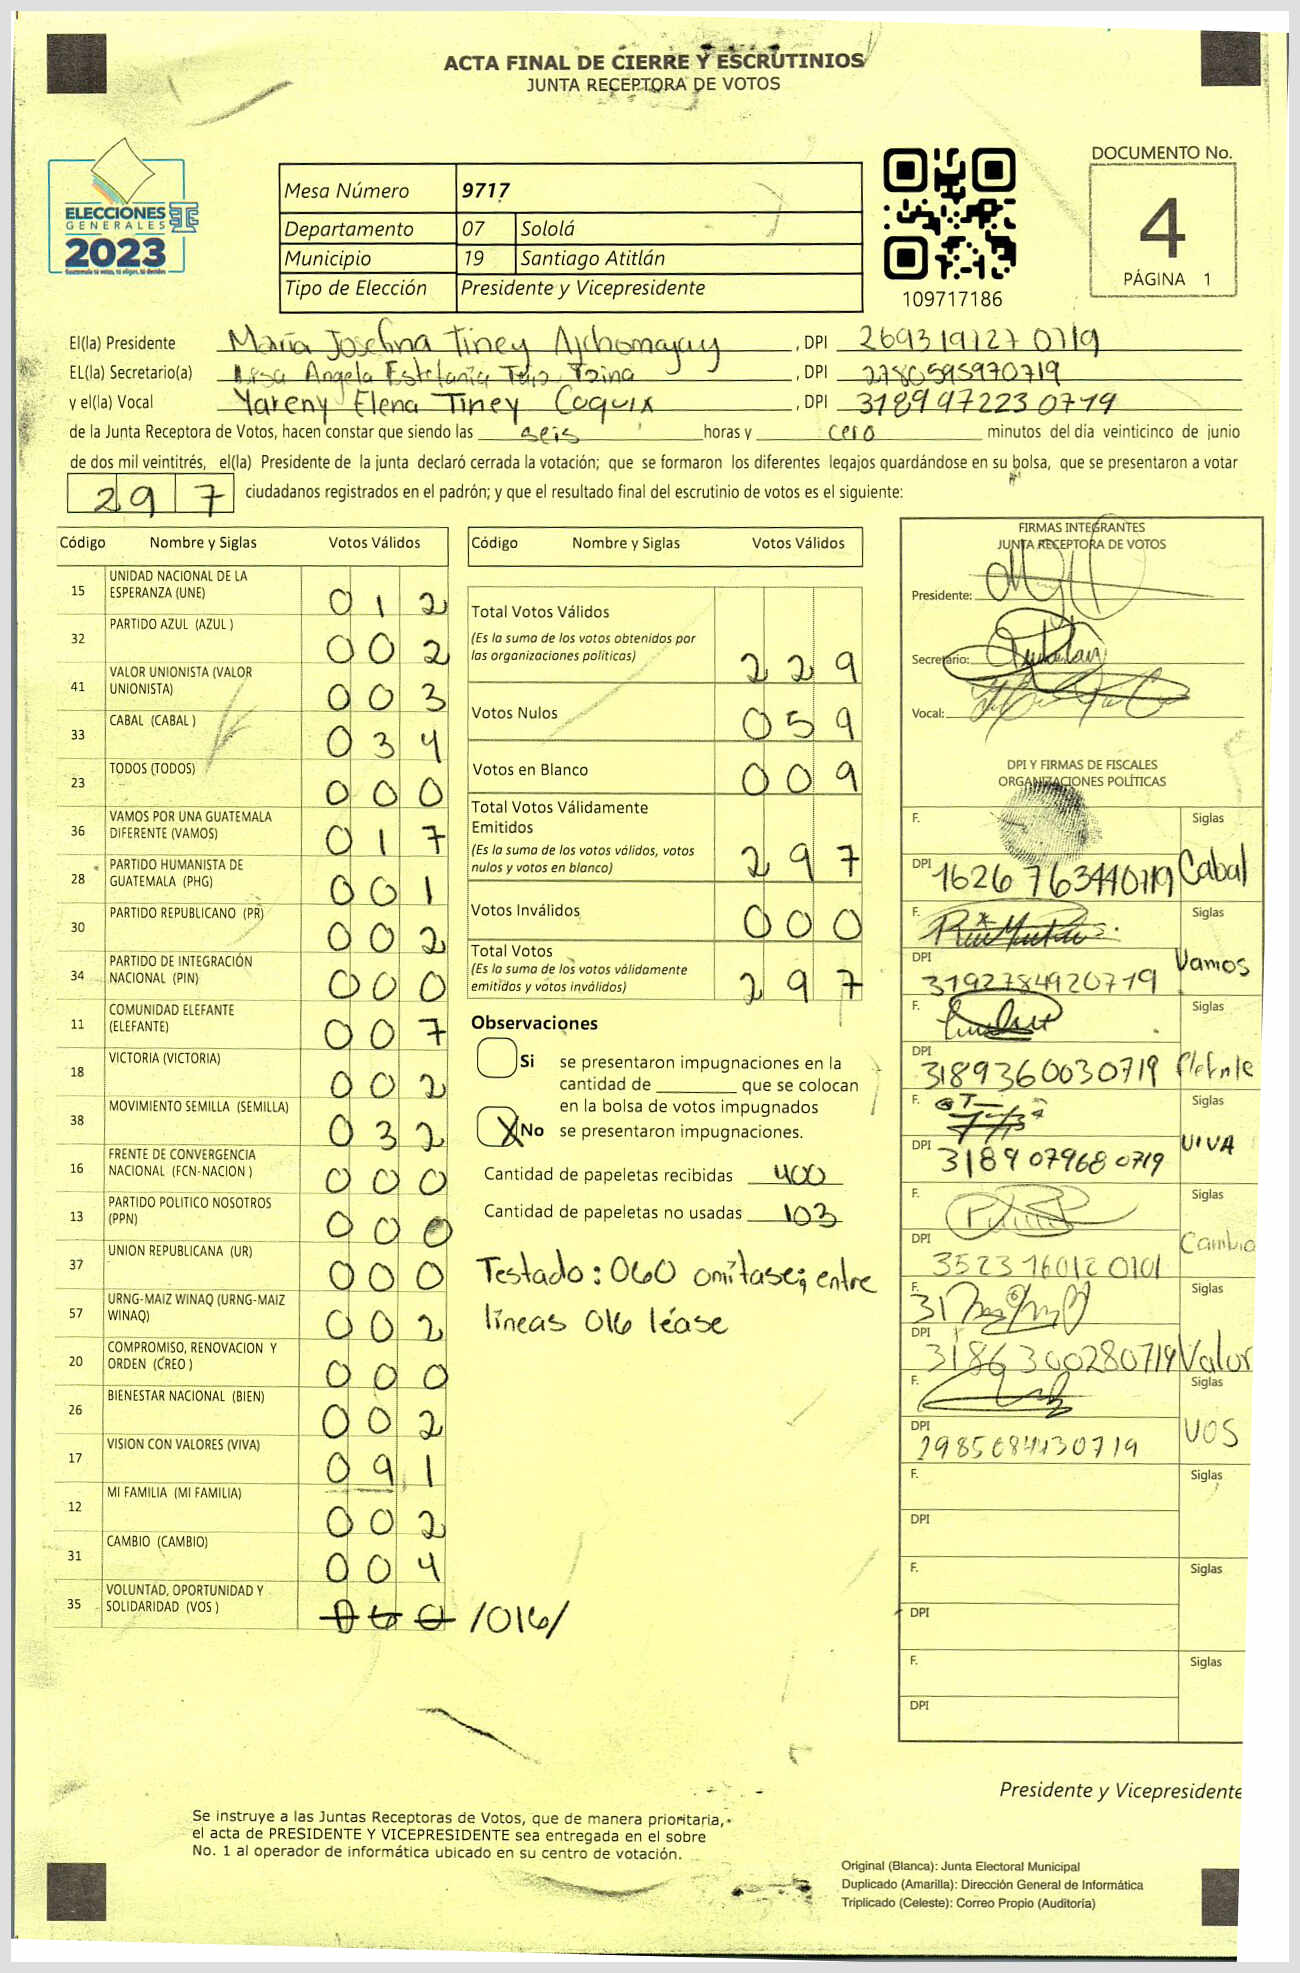 ACTA FINAL DE CIERRE Y ESCRUTINIOS
JUNTA RECEPTORA DE VOTOS
ELECCIONES
GENERALES
2023
Guatemala tú votas, tú eliges, tú decides
Mesa Número 9717
Departamento 07 Sololá
Municipio 19 Santiago Atitlán
Tipo de Elección Presidente y Vicepresidente
109717186
DOCUMENTO No.
4
PÁGINA 1
El(la) Presidente María Josefina Tiney Ajchomajay, DPI 2693191270719
EL(la) Secretario(a) Angela Estefanía Tzina, DPI 2780595970719
y el(la) Vocal Yareny Elena Tiney Coquix, DPI 3189972230719
de la Junta Receptora de Votos, hacen constar que siendo las seis horas y cero minutos del día veinticinco de junio
de dos mil veintitrés, el(la) Presidente de la junta declaró cerrada la votación; que se formaron los diferentes legajos guardándose en su bolsa, que se presentaron a votar
297 ciudadanos registrados en el padrón; y que el resultado final del escrutinio de votos es el siguiente:
Código Nombre y Siglas Votos Válidos
15 UNIDAD NACIONAL DE LA ESPERANZA (UNE) 012
32 PARTIDO AZUL (AZUL ) 002
41 VALOR UNIONISTA (VALOR UNIONISTA) 003
33 CABAL (CABAL ) 034
23 TODOS (TODOS) 000
36 VAMOS POR UNA GUATEMALA DIFERENTE (VAMOS) 017
28 PARTIDO HUMANISTA DE GUATEMALA (PHG) 001
30 PARTIDO REPUBLICANO (PR) 002
34 PARTIDO DE INTEGRACIÓN NACIONAL (PIN) 000
11 COMUNIDAD ELEFANTE (ELEFANTE) 007
18 VICTORIA (VICTORIA) 002
38 MOVIMIENTO SEMILLA (SEMILLA) 032
16 FRENTE DE CONVERGENCIA NACIONAL (FCN-NACION ) 000
13 PARTIDO POLITICO NOSOTROS (PPN) 000
37 UNION REPUBLICANA (UR) 000
57 URNG-MAIZ WINAQ (URNG-MAIZ WINAQ) 002
20 COMPROMISO, RENOVACION Y ORDEN (CREO ) 000
26 BIENESTAR NACIONAL (BIEN) 002
17 VISION CON VALORES (VIVA) 091
12 MI FAMILIA (MI FAMILIA) 002
31 CAMBIO (CAMBIO) 004
35 VOLUNTAD, OPORTUNIDAD Y SOLIDARIDAD (VOS ) 060 /016/
Código Nombre y Siglas Votos Válidos
Total Votos Válidos 229
(Es la suma de los votos obtenidos por
las organizaciones políticas)
Votos Nulos 059
Votos en Blanco 009
Total Votos Válidamente
Emitidos 297
(Es la suma de los votos válidos, votos
nulos y votos en blanco)
Votos Inválidos 000
Total Votos 297
(Es la suma de los votos válidamente
emitidos y votos inválidos)
Observaciones
Si se presentaron impugnaciones en la
cantidad de ________ que se colocan
en la bolsa de votos impugnados
X No se presentaron impugnaciones.
Cantidad de papeletas recibidas 400
Cantidad de papeletas no usadas 103
Testado: 060 omítase; entre
líneas 016 léase
FIRMAS INTEGRANTES
JUNTA RECEPTORA DE VOTOS
Presidente:
Secretario:
Vocal:
DPI Y FIRMAS DE FISCALES
ORGANIZACIONES POLÍTICAS
F. Siglas
DPI 1626763440719 Cabal
F. Siglas
DPI 3192784920719 Vamos
F. Siglas
DPI 3189360030719
F. Siglas
DPI 3189079680719 VIVA
F. Siglas
DPI 3523160120101 Cambio
F. Siglas
DPI 3186300280719 Valor
F. Siglas
DPI 2985684130719 VOS
F. Siglas
DPI
F. Siglas
DPI
F. Siglas
DPI
Presidente y Vicepresidente
Se instruye a las Juntas Receptoras de Votos, que de manera prioritaria,
el acta de PRESIDENTE Y VICEPRESIDENTE sea entregada en el sobre
No. 1 al operador de informática ubicado en su centro de votación.
Original (Blanca): Junta Electoral Municipal
Duplicado (Amarilla): Dirección General de Informática
Triplicado (Celeste): Correo Propio (Auditoría)